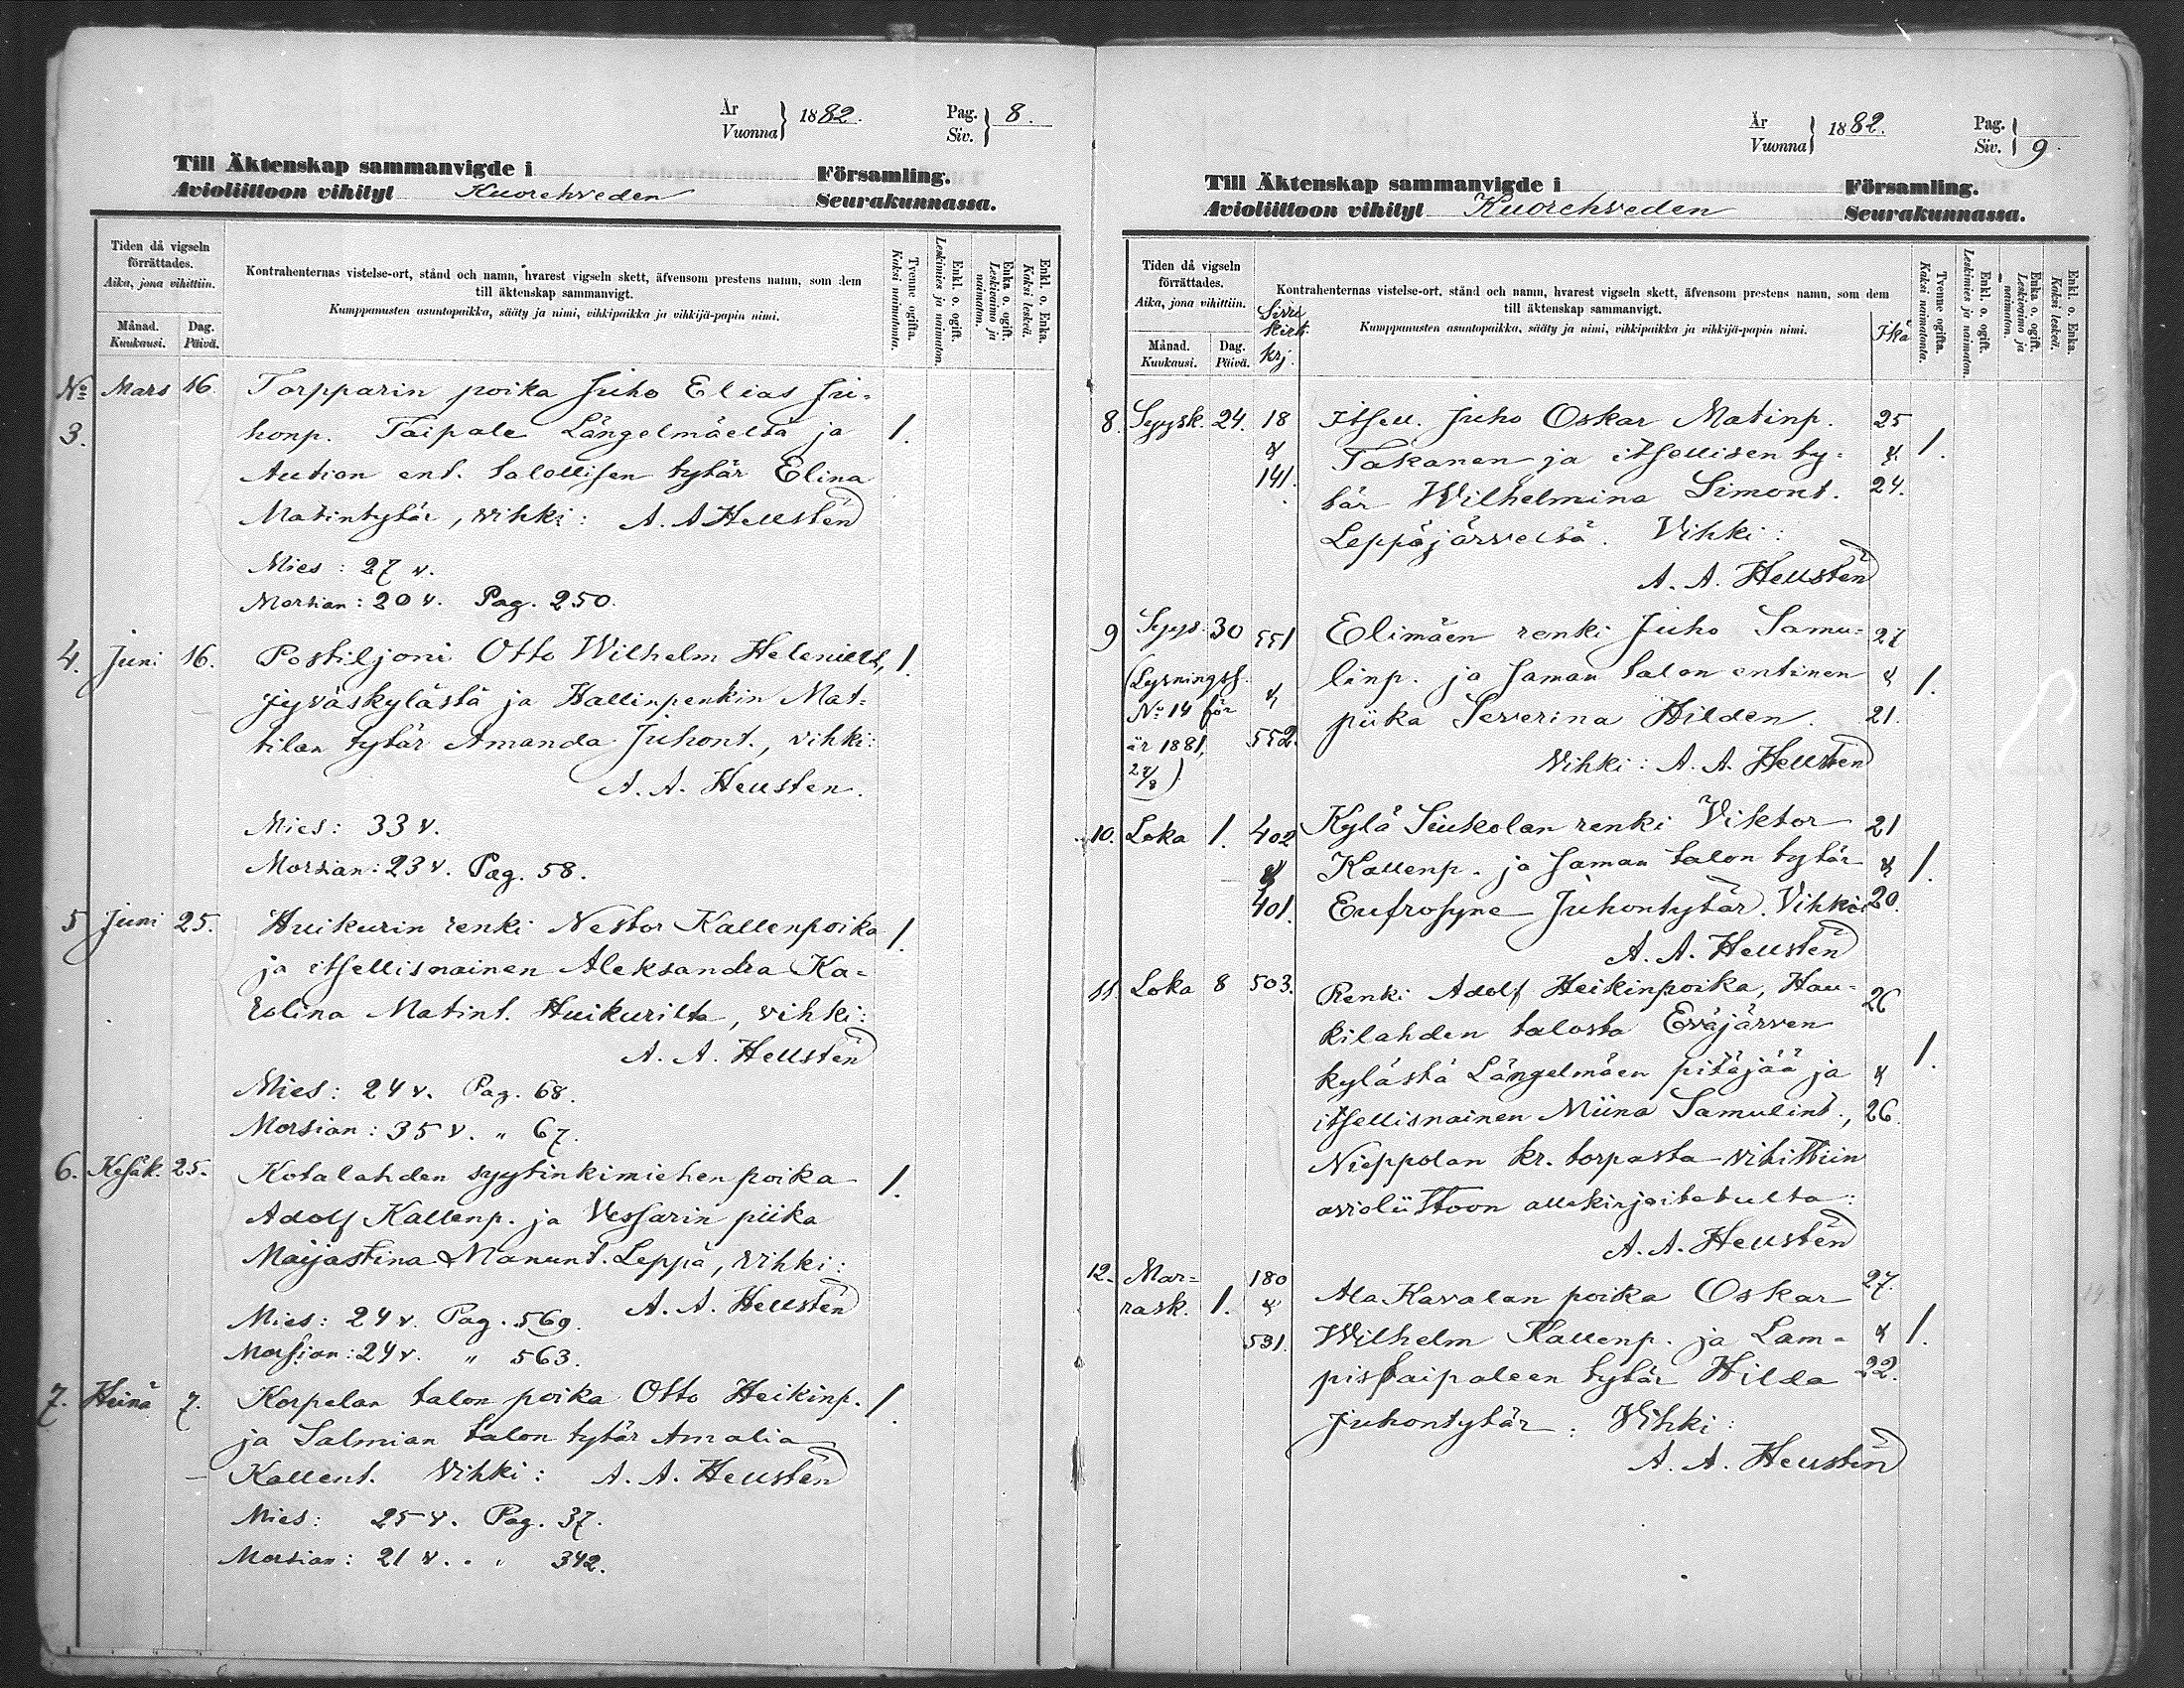 År
Vuonna } 1882.
Pag.
Siv. } 8.
Till Äktenskap sammanvigde i Församling.
Avioliittoon vihityt Kuorehveden Seurakunnassa.
Tiden då vigseln
förrättades.
Aika, jona vihittiin.
Månad.
Kuukausi.
Dag.
Päivä.
Kontrahenternas vistelse-ort, stånd och namn, hvarest vigseln skett, äfvensom prestens namn, som dem
till äktenskap sammanvigt.
Kumppanusten asuntopaikka, sääty ja nimi, vihkipaikka ja vihkijä-papin nimi.
Tvenne ogifta.
Kaksi naimatonta.
Enkl. o. ogift.
Leskimies ja naimaton.
Enka o. ogift.
Leskivaimo ja
naimaton.
Enkl. o. Enka.
Kaksi leskeä.
No Mars 16. Torpparin poika Juho Elias Ju-
3. honp. Taipale Längelmäeltä ja 1.
Aution ent. talollisen tytär Elina
Matintytär, vihki: A. A. Hellstén
Mies: 27 v.
Morsian: 20 v. Pag. 250.
4. Juni 16. Postiljoni Otto Wilhelm Helenius, 1.
Jyväskylästä ja Hallinpenkin Mat-
tilan tytär Amanda Juhont., vihki:
A. A. Hellsten.
Mies: 33 v.
Morsian: 23 v. Pag. 58.
5 Juni 25. Huikurin renki Nestor Kallenpoika 1.
ja itsellisnainen Aleksandra Ka-
rolina Matint. Huikurilta, vihki:
A. A. Hellstén
Mies: 24 v. Pag. 68.
Morsian: 35 v. " 67.
6. Kesäk. 25. Kotalahden syytinkimiehen poika 1.
Adolf Kallenp. ja Vessarin piika
Maijastina Manunt. Leppä, vihki:
A. A. Hellstén
Mies: 24 v. Pag. 569.
Morsian: 24 v. " 563.
7. Heinä 7. Korpelan talon poika Otto Heikinp. 1.
ja Salmian talon tytär Amalia
Kallent. Vihki: A. A. Hellstén
Mies: 25 v. Pag. 37.
Morsian: 21 v. " 342.
År
Vuonna } 1882.
Pag.
Siv. } 9.
Till Äktenskap sammanvigde i Församling.
Avioliittoon vihityt Kuorehveden Seurakunnassa.
Tiden då vigseln
förrättades.
Aika, jona vihittiin.
Månad.
Kuukausi.
Dag.
Päivä.
krj.
Kontrahenternas vistelse-ort, stånd och namn, hvarest vigseln skett, äfvensom prestens namn, som dem
till äktenskap sammanvigt.
Kumppanusten asuntopaikka, sääty ja nimi, vihkipaikka ja vihkijä-papin nimi.
Ikä
Tvenne ogifta.
Kaksi naimatonta.
Enkl. o. ogift.
Leskimies ja naimaton.
Enka o. ogift.
Leskivaimo ja
naimaton.
Enkl. o. Enka.
Kaksi leskeä.
8. Syysk. 24. 18 Itsell. Juho Oskar Matinp. 25
& Takanen ja itsellisen ty- & 1.
141. tär Wilhelmina Simont. 24.
Leppäjärveltä. Vihki:
A. A. Hellstén
9 Syys. 30 551 Elimäen renki Juho Samu- 27
(Lysningsf. & linp. ja saman talon entinen & 1.
No 14 för
år 1881, 552. piika Severina Hilden. 21.
27/8). Vihki: A. A. Hellsten
10. Loka 1. 402 Kylä Siukolan renki Viktor 21
& Kallenp. ja saman talon tytär & 1.
401. Eufrosyne Juhontytär. Vihki: 20.
A. A. Hellstén
11. Loka 8 503. Renki Adolf Heikinpoika, Hau- 26
kilahden talosta Eväjärven
kylästä Längelmäen pitäjää ja & 1.
itsellisnainen Miina Samulint., 26.
Nieppolan kr. torpasta vihittiin
avioliittoon allekirjoitetulta:
A. A. Hellstén
12. Mar- 180 Ala Kavalan poika Oskar 27.
rask. 1. & Wilhelm Kallenp. ja Lam- & 1.
531. pistaipaleen tytär Hilda 22.
Juhontytär. Vihki:
A. A. Hellstén